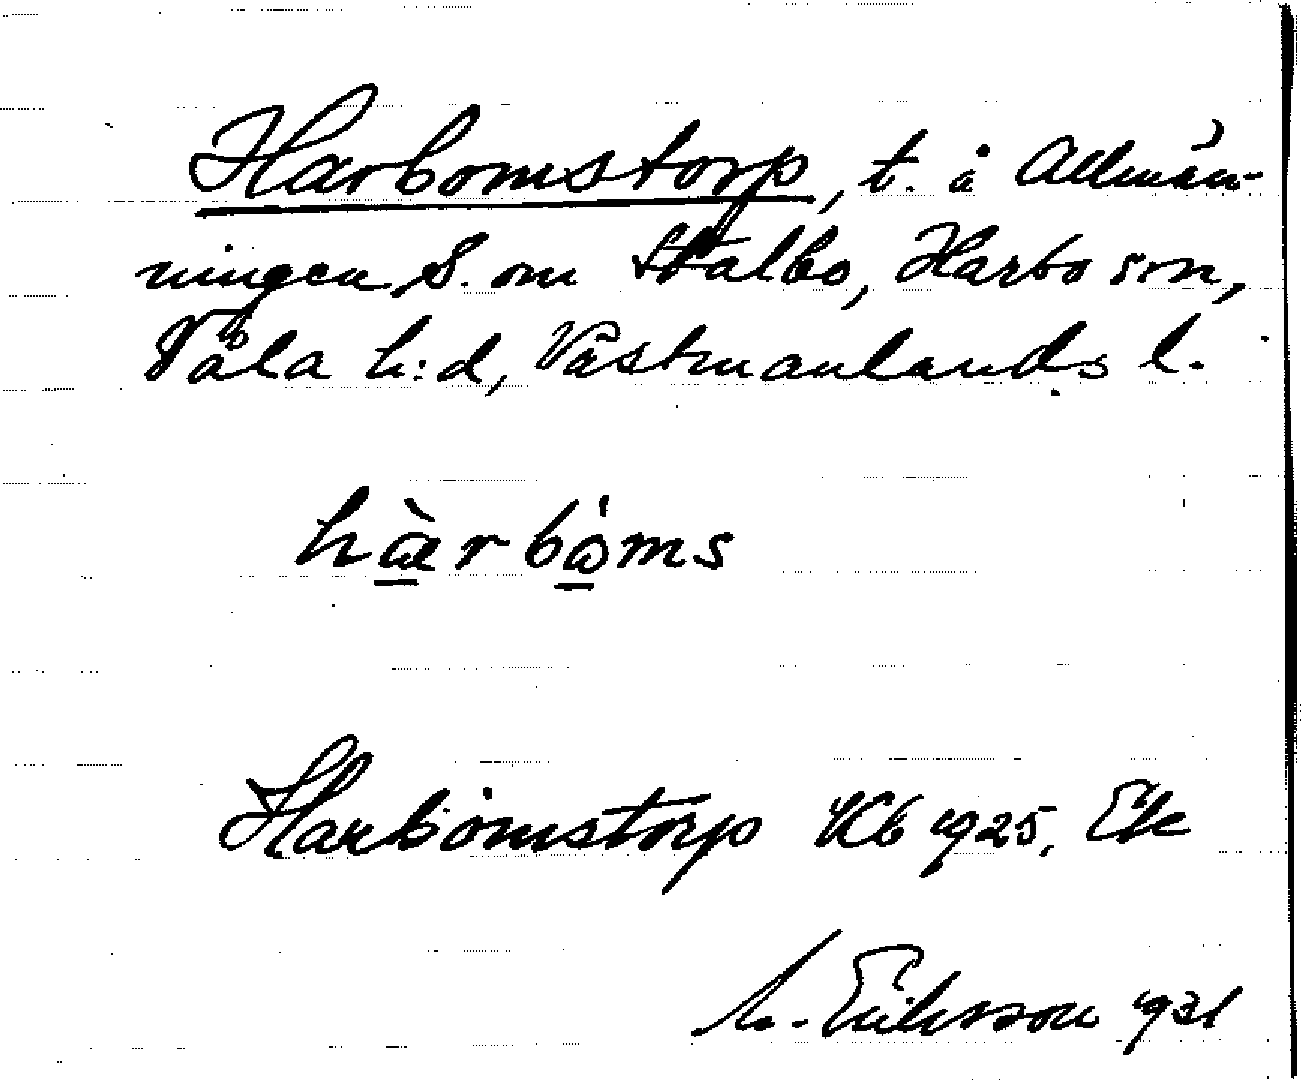 Harbomstorp, t. å Allmän-
ningen S. om Stalbo, Harbo sn,
Våla h:d, Västmanlands l.
hæ̀rbòms
Harbomstorp Kb 1925, Ek
Eriksson 1931